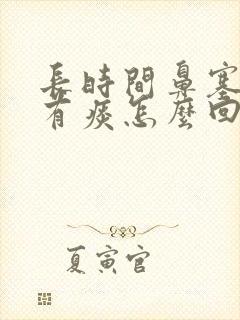 長時間鼻塞
有痰怎麼回
夏寅官